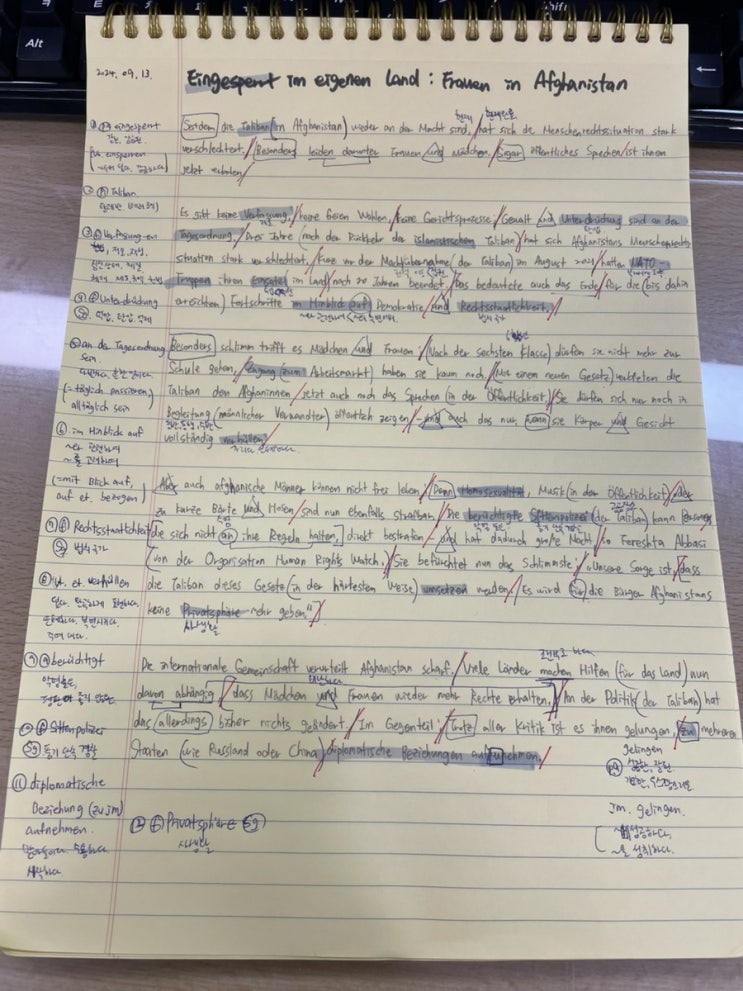 Alt
Shift
2024. 09. 13.
Eingesperrt im eigenen Land : Frauen in Afghanistan
Seitdem die Taliban (in Afghanistan) wieder an der Macht sind, hat sich die Menschenrechtssituation stark
verschlechtert. Besonders leiden darunter Frauen und Mädchen. Sogar öffentliches Sprechen ist ihnen
jetzt verboten.
Es gibt keine Verfassung, keine freien Wahlen, keine Gerichtsprozesse; Gewalt und Unterdrückung sind an der
Tagesordnung. Drei Jahre (nach der Rückkehr der islamistischen Taliban) hat sich Afghanistans Menschenrechts
situation stark verschlechtert. Kurz vor der Machtübernahme (der Taliban) im August 2021 hatten NATO-
Truppen ihren Einsatz (im Land) nach 20 Jahren beendet. Das bedeutete auch das Ende für die (bis dahin
erreichten) Fortschritte im Hinblick (auf) Demokratie und Rechtsstaatlichkeit.
~와 관련하여
법치국가
Besonders schlimm trifft es Mädchen und Frauen: Nach der sechsten Klasse) dürfen sie nicht mehr zur
Schule gehen, Zugang (zum Arbeitsmarkt) haben sie kaum noch. (Mit einem neuen Gesetz) verbieten die
Taliban den Afghaninnen jetzt auch noch das Sprechen (in der Öffentlichkeit). Sie dürfen sich nur noch in
Begleitung (männlicher Verwandten) öffentlich zeigen - und auch das nur, wenn sie Körper und Gesicht
vollständig verhüllen.
Aber auch afghanische Männer können nicht frei leben. (Denn) Homosexualität, Musik (in der Öffentlichkeit) oder
zu kurze Bärte und Hosen sind nun ebenfalls strafbar. Die berüchtigte Sittenpolizei (der Taliban) kann Personen,
die sich nicht an ihre Regeln halten, direkt bestrafen - und hat dadurch große Macht, so Fereshta Abbasi
(von der Organisation Human Rights Watch). Sie befürchtet nun das Schlimmste: „Unsere Sorge ist, dass
die Taliban dieses Gesetz (in der härtesten Weise) umsetzen werden. Es wird für die Bürger Afghanistans
keine Privatsphäre mehr geben."
사생활
Die internationale Gemeinschaft verurteilt Afghanistan scharf. Viele Länder machen Hilfen (für das Land) nun
davon abhängig, dass Mädchen und Frauen wieder mehr Rechte erhalten. An der Politik (der Taliban) hat
das allerdings bisher nichts geändert. Im Gegenteil: Trotz aller Kritik ist es ihnen gelungen, zu mehreren
Staaten (wie Russland oder China) diplomatische Beziehungen aufzunehmen.
eingesperrt
einsperren
② Taliban
③ Verfassung-en
④ Unterdrückung
Sg
⑤ an der Tagesordnung
sein
(=täglich passieren)
alltäglich sein
⑥ im Hinblick auf
~와 관련하여
~를 고려하여
(=mit Blick auf,
auf et. bezogen)
⑦ Rechtsstaatlichkeit
Sg 법치국가
⑧ jn. et. verhüllen
⑨ berüchtigt
⑩ Sittenpolizei
Sg 풍기 단속 경찰
⑪ diplomatische
Beziehung (zu jm)
aufnehmen.
시작하다.
⑫ Privatsphäre Sg
사생활
gelingen
jm. gelingen.
~에 성공하다,
~을 성취하다.